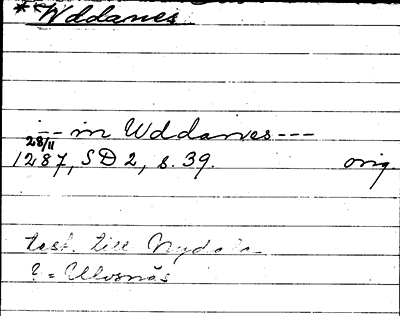 *Wddanes
-- in Wddanes ---
28/11
1287, SD 2, s. 39. orig.
test. till Nydala
? = Ulvsnäs